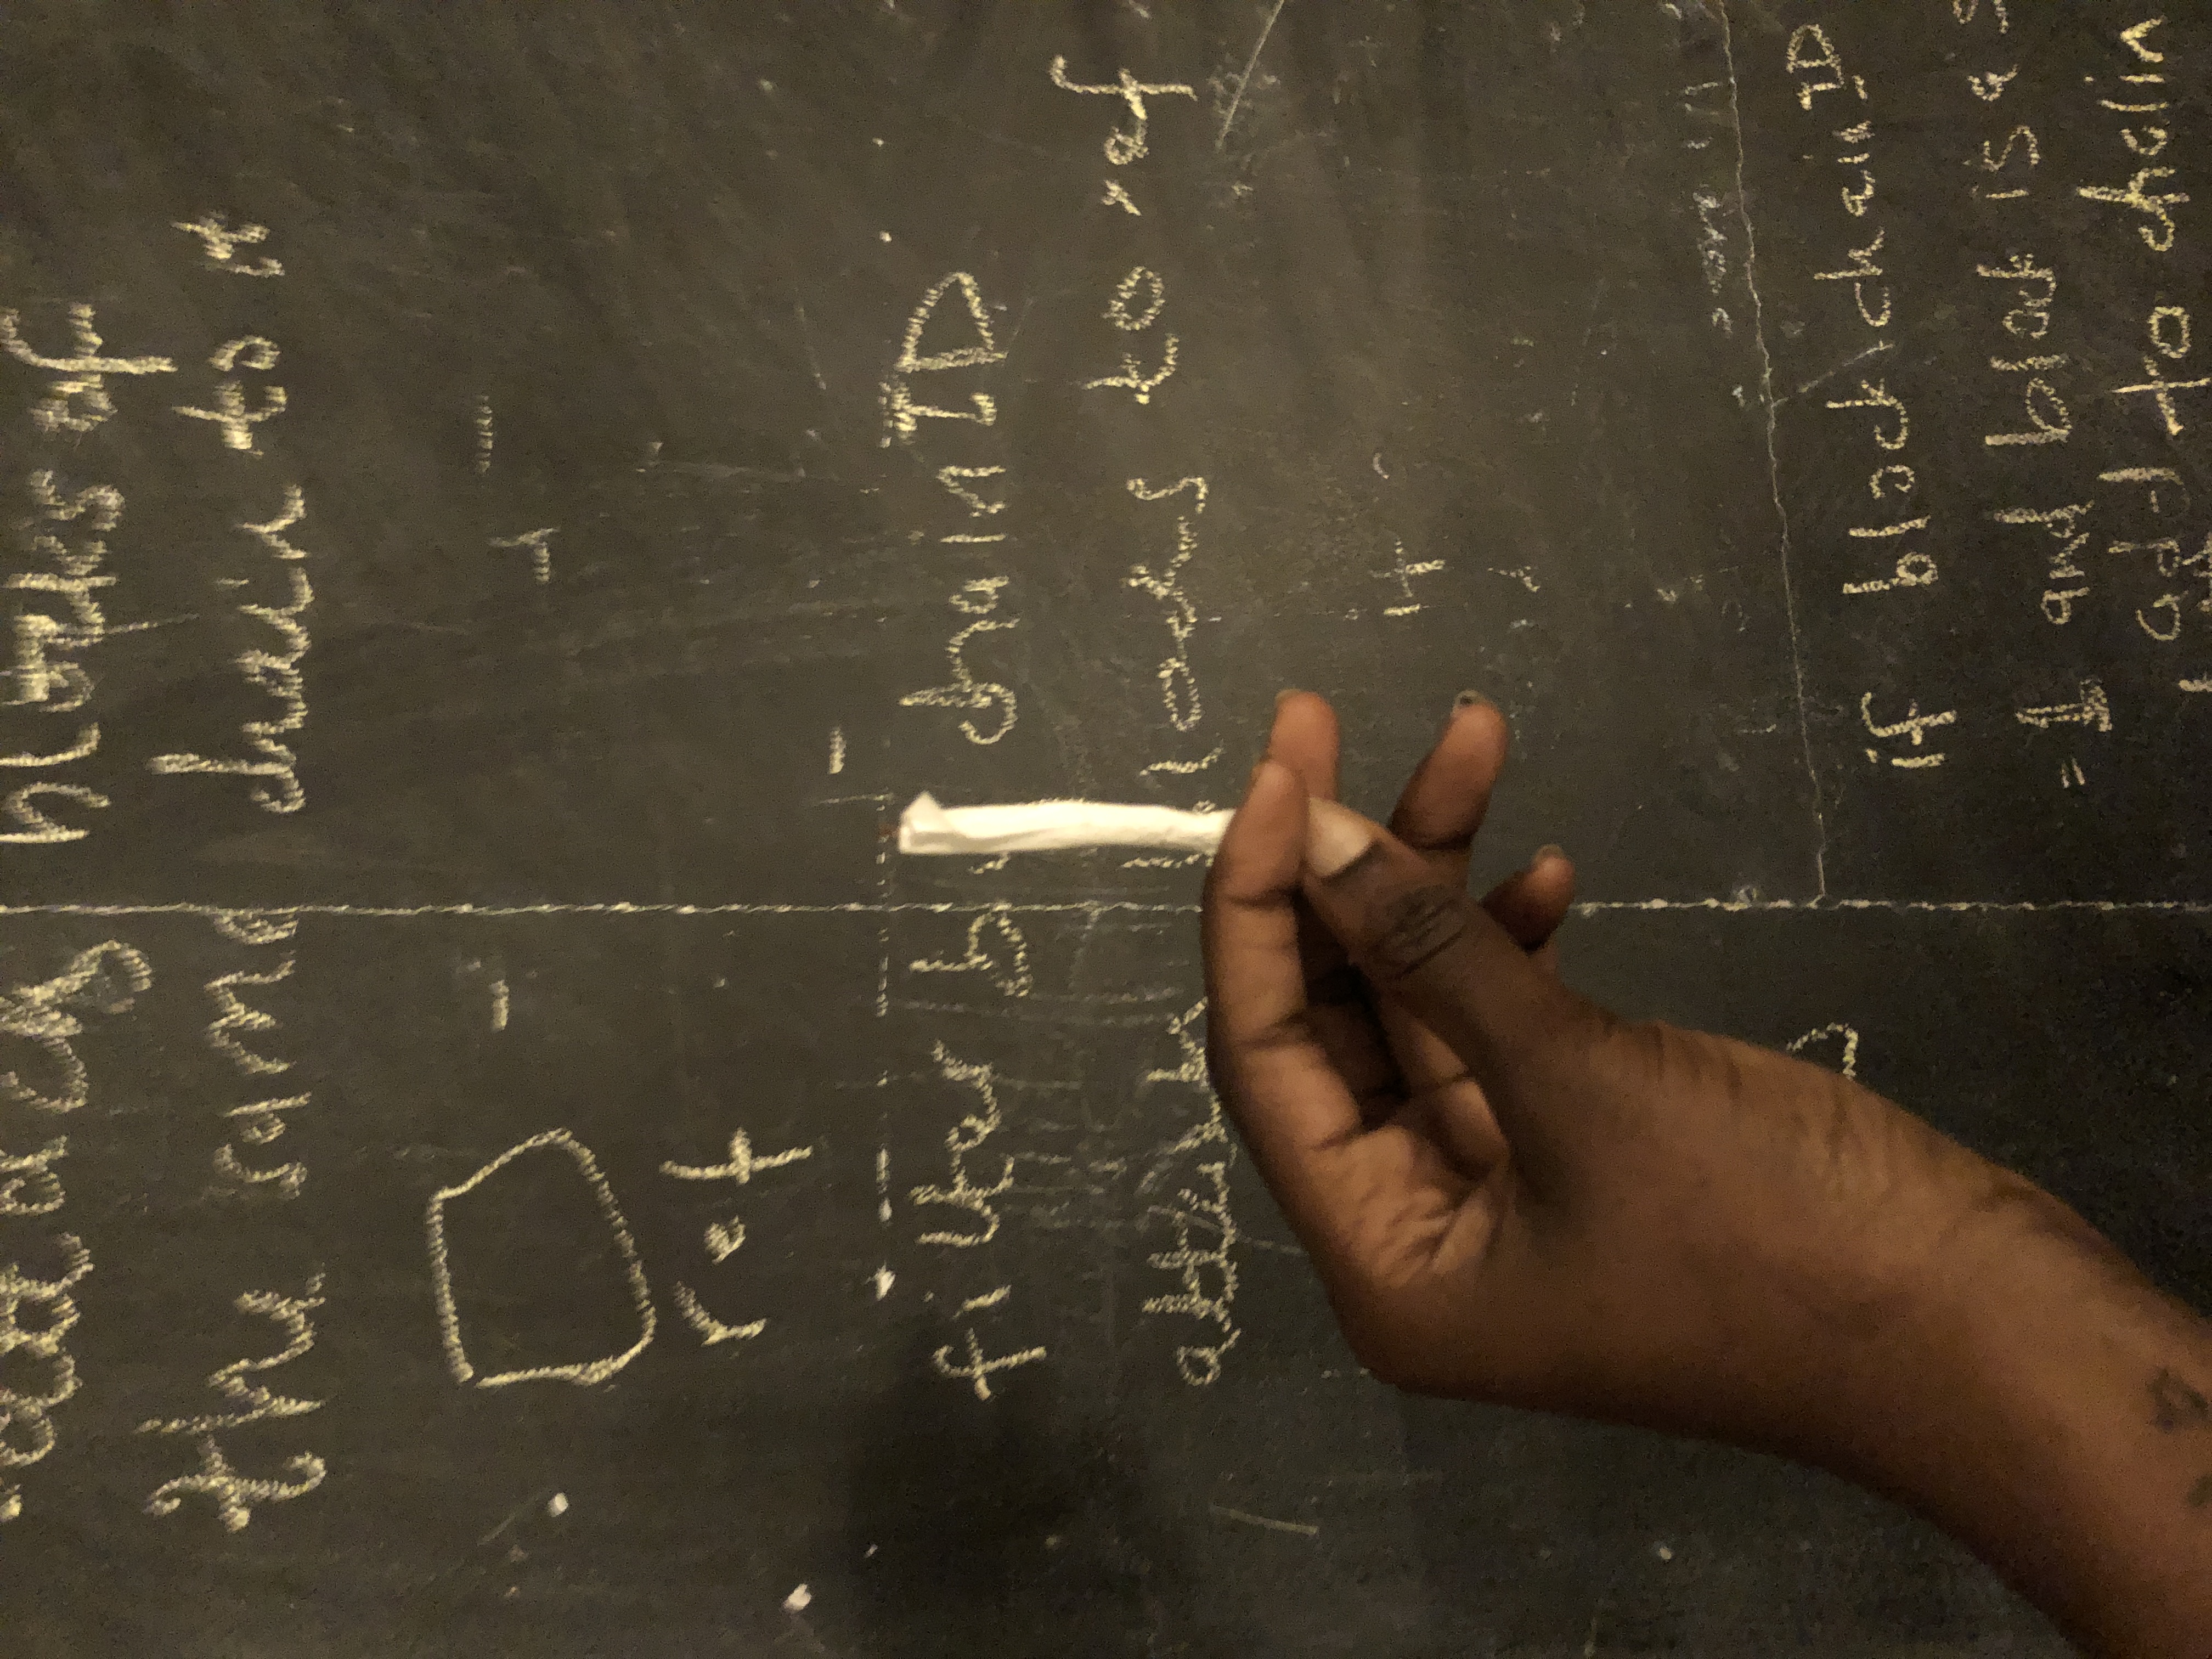 attach blocks of
the same chain to it
ref
filter by chain ID
attach blocks to ref
if block.chain ID
= 1 and block is a
add to chain